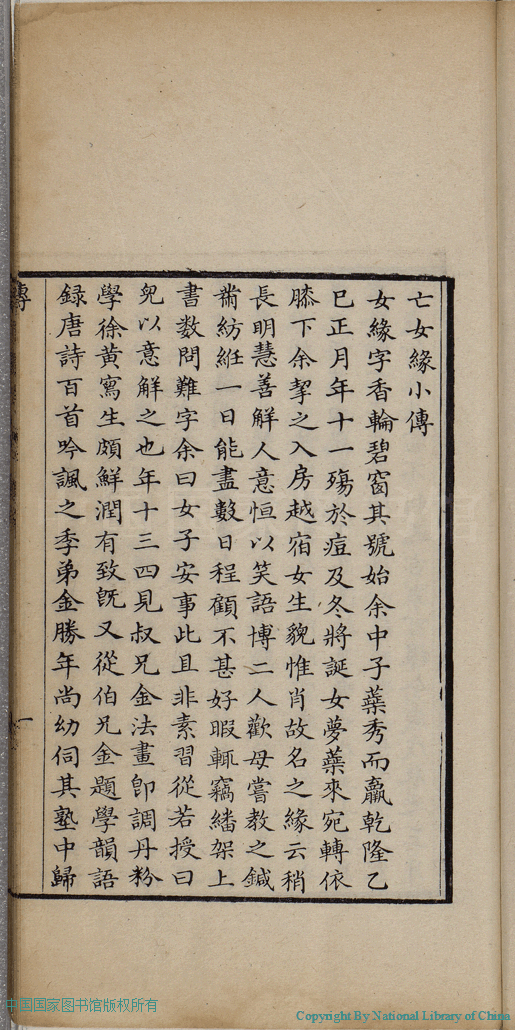 亡女緣小傳
女緣字香輪碧窗其號始余中子蘃秀而羸乾隆乙
巳正月年十一殤於痘及冬將誕女夢蘃來宛轉依
膝下余挈之入房越宿女生貌惟肖故名之緣云稍
長明慧善解人意恒以笑語博二人歡母嘗教之鍼
黹紡絍一日能盡數日程顧不甚好暇輒竊繙架上
書数問難字余曰女子安事此且非素習從若授曰
兒以意解之也年十三四見叔兄金法畫卽調丹粉
學徐黃寫生頗鮮潤有致旣又從伯兄金題學韻語
録唐詩百首吟諷之季弟金勝年尚幼伺其塾中歸
傳
一
中国国家图书馆版权所有
Copyright By National Library of China